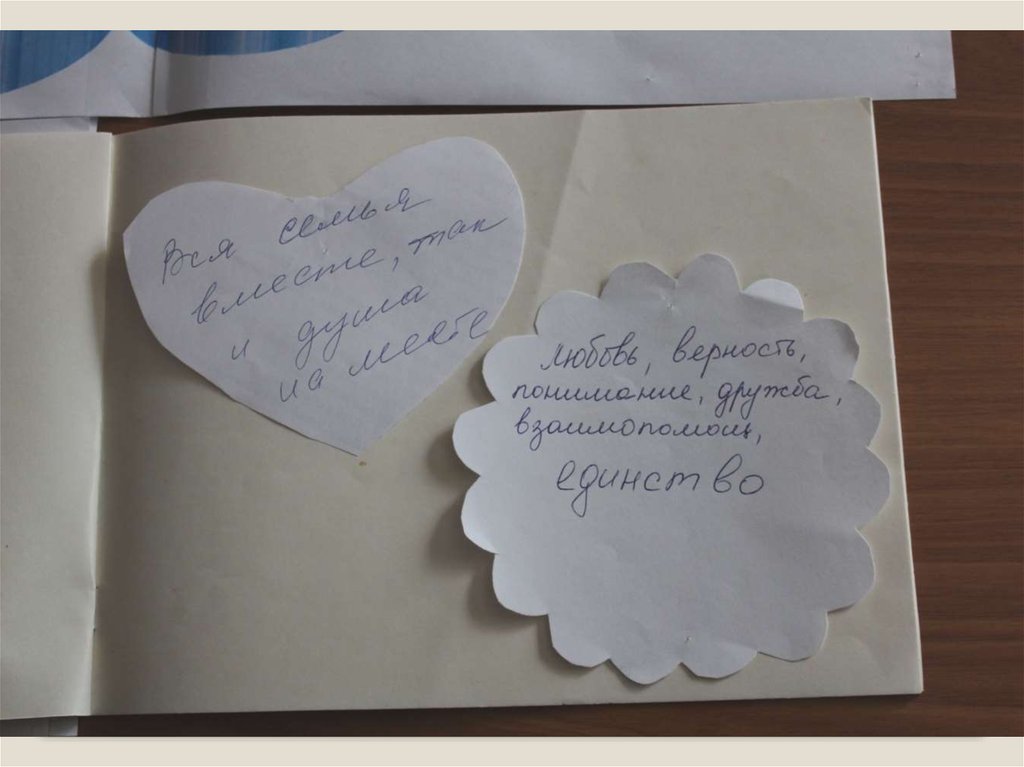 Вся семья
вместе, так
и душа
на месте
любовь, верность,
понимание, дружба,
взаимопомощь,
единство